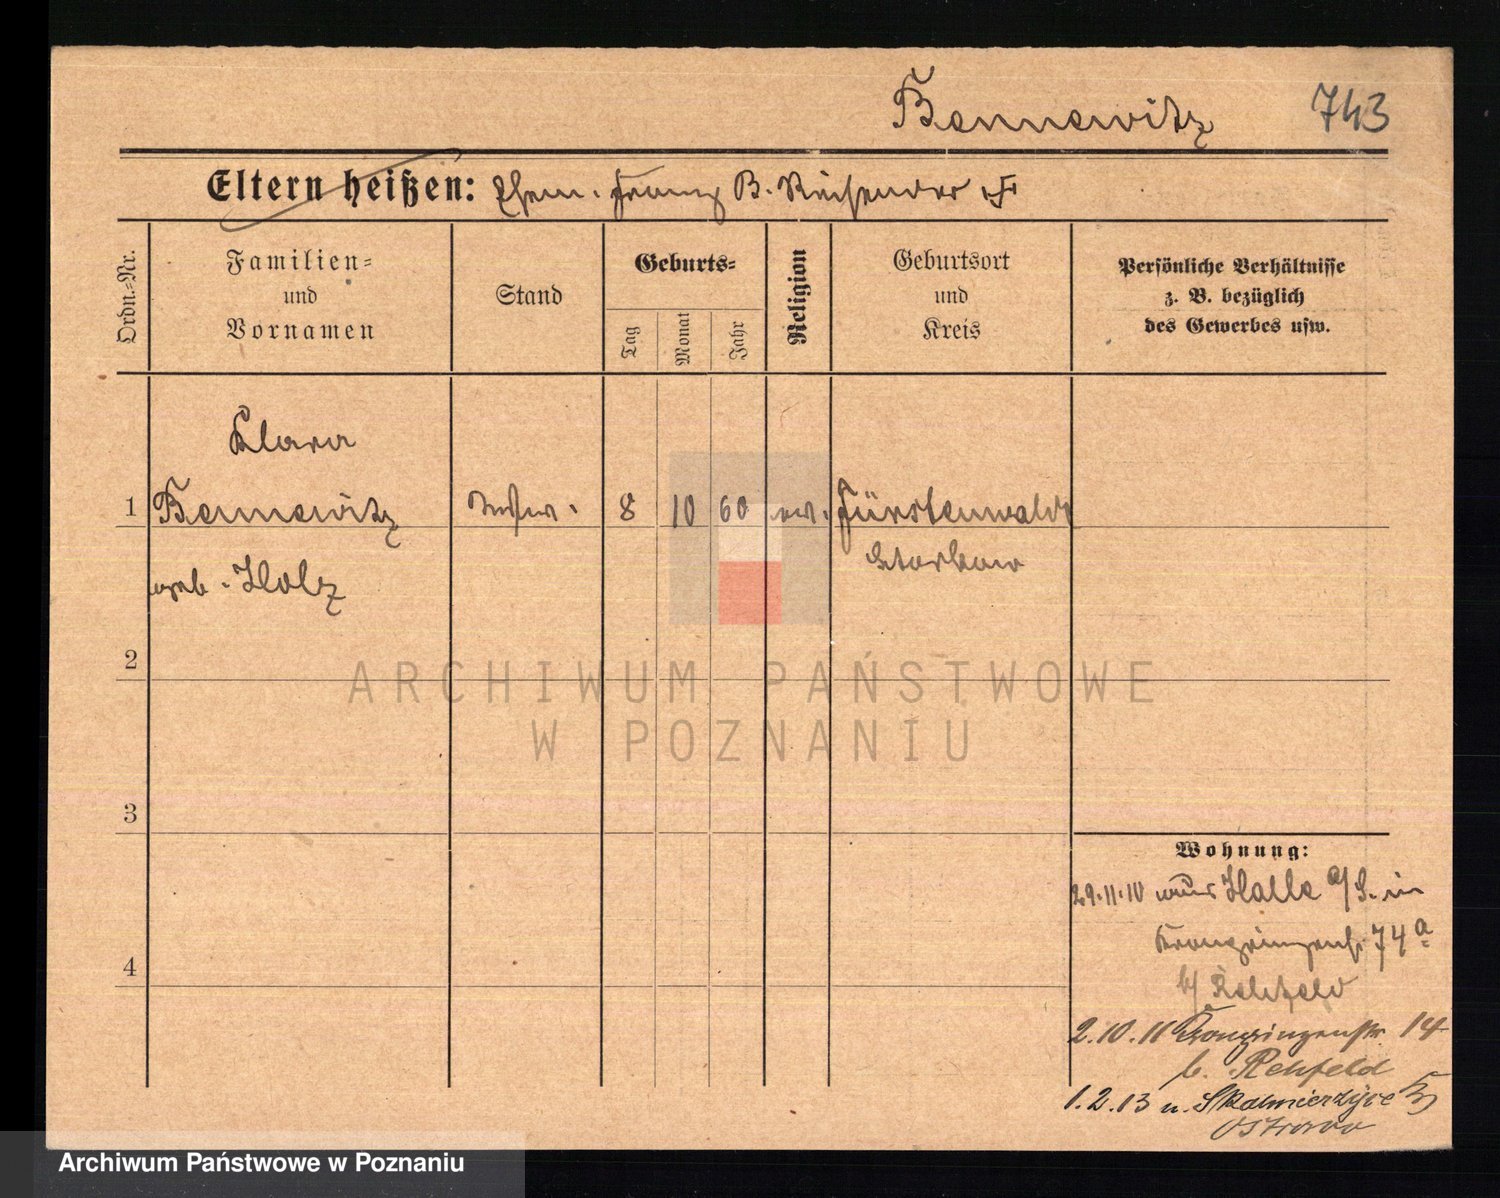 Bennewitz 743
Eltern heißen: Ehem. Franz B. Reisender
Ordn.-Nr.
Familien-
und
Vornamen
Stand
Geburts-
Tag
Monat
Jahr
Religion
Geburtsort
und
Kreis
Persönliche Verhältnisse
z. B. bezüglich
des Gewerbes usw.
Klara
1 Bennewitz Witwe. 8 10 60 ev. Fürstenwalde
geb. Holz Storkow
2
ARCHIWUM PAŃSTWOWE
W POZNANIU
3
Wohnung:
29.11.10 Halle a/S. in
4 Kronprinzenstr. 74a
b/ Rehfeld
2.10.11 Kronprinzenstr 14
b. Rehfeld
1.2.13 n. Skalmierzyce Kr
Ostrowo
Archiwum Państwowe w Poznaniu